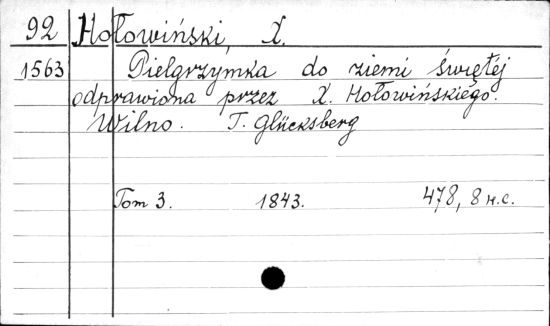 92 Hołowiński, X.
1563 Pielgrzymka do ziemi świętéj
odprawiona przez X. Hołowińskiego.
Wilno. T. Glücksberg
Tom 3. 1843. 478, 8 н.с.